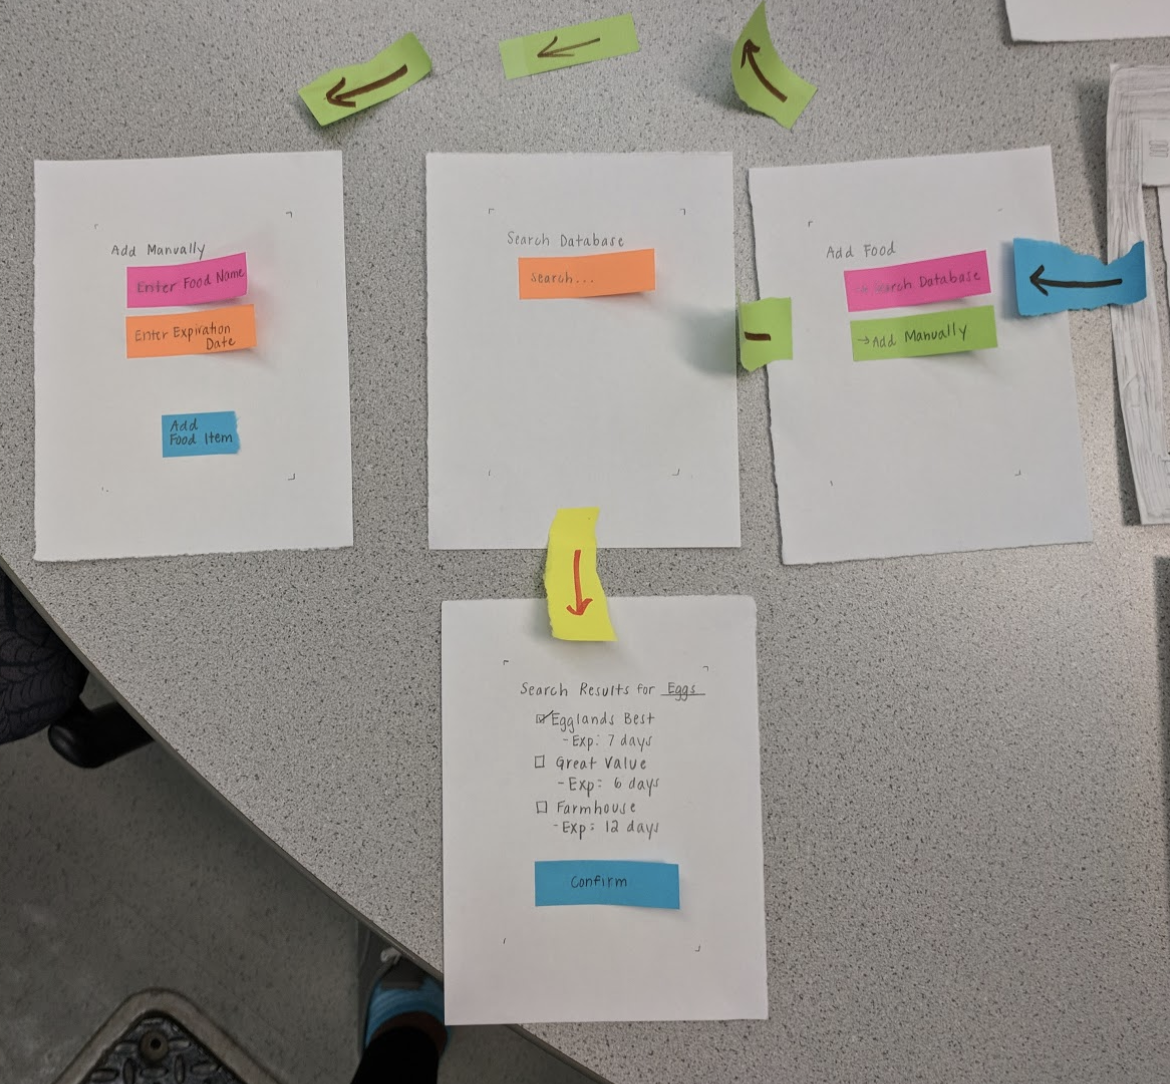 Add Manually
Enter Food Name
Enter Expiration
Date
Add
Food Item
Search Database
Search...
Add Food
→ Search Database
→ Add Manually
Search Results for Eggs
Egglands Best
- Exp: 7 days
Great Value
- Exp: 6 days
Farmhouse
- Exp: 12 days
Confirm